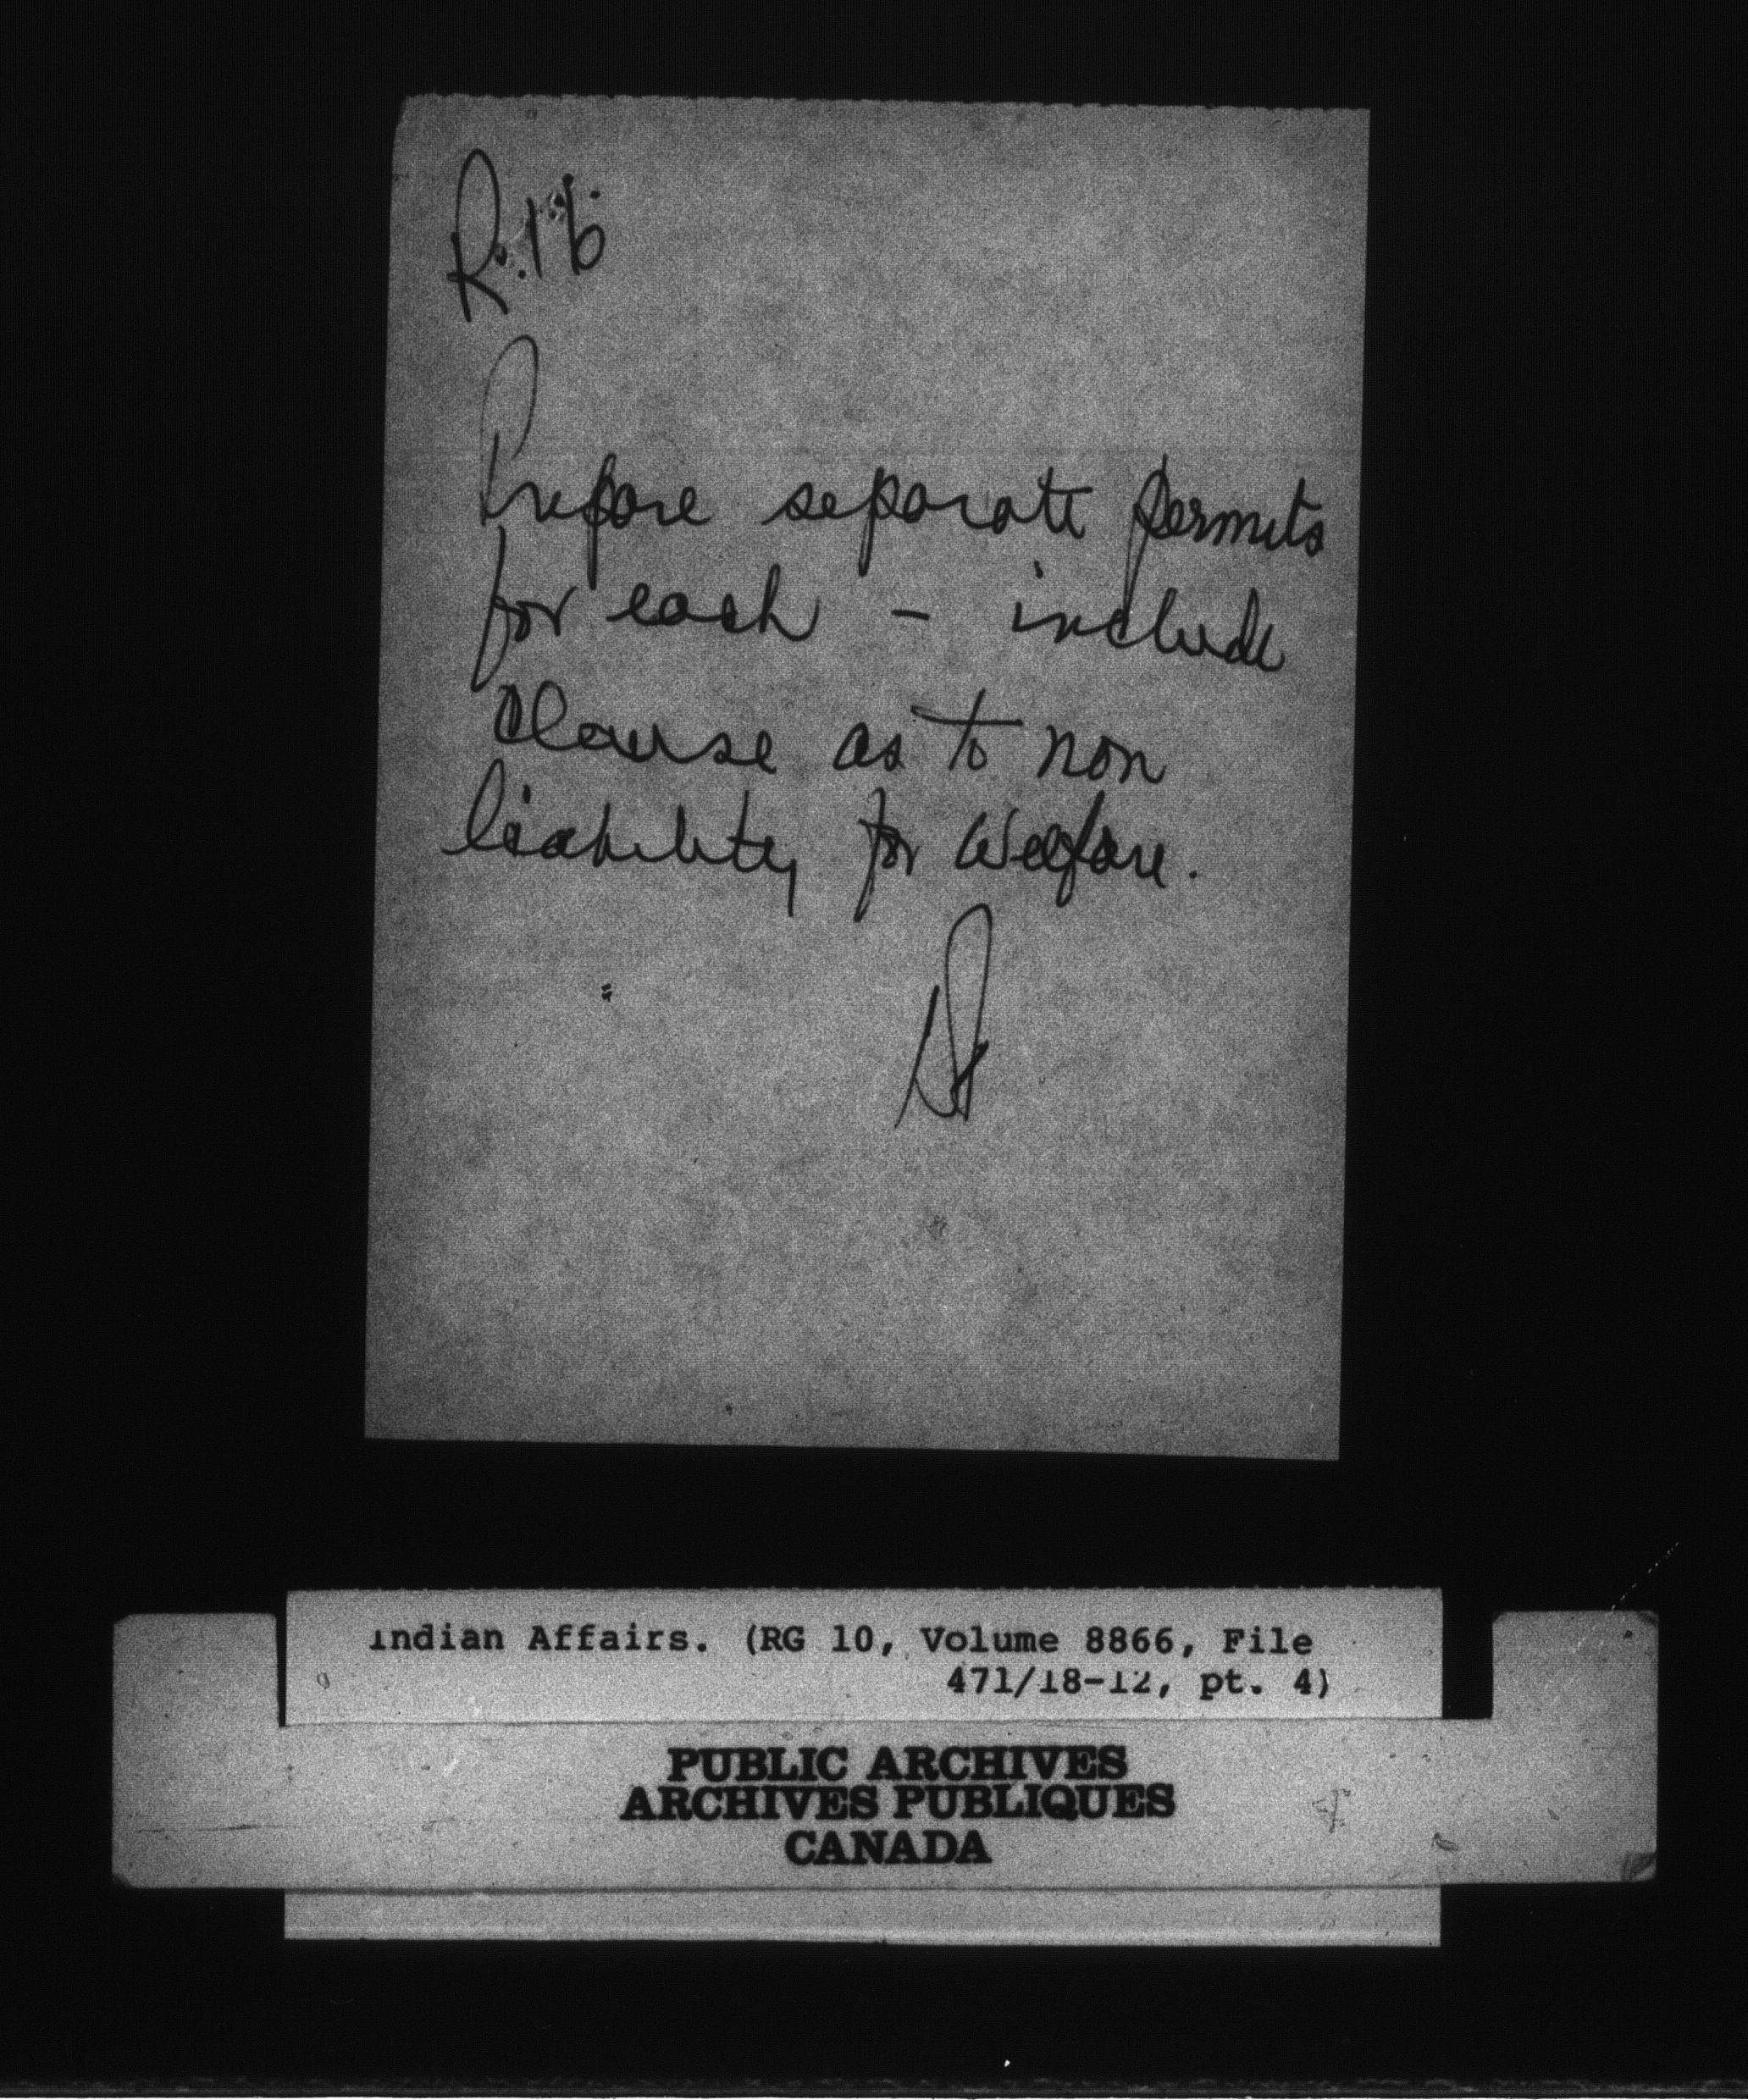 R.16
Prepare separate permits
for each - include
Clause as to non
liability for Welfare.
Indian Affairs. (RG 10, Volume 8866, File
471/18-12, pt. 4)
PUBLIC ARCHIVES
ARCHIVES PUBLIQUES
CANADA